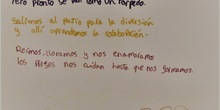 Pero pronto se van como un torpedo.
Salimos al patio para la diversión
y allí aprendemos la colaboración.
Reímos, lloramos y nos enamoramos
los profes nos cuidan hasta que nos formamos.